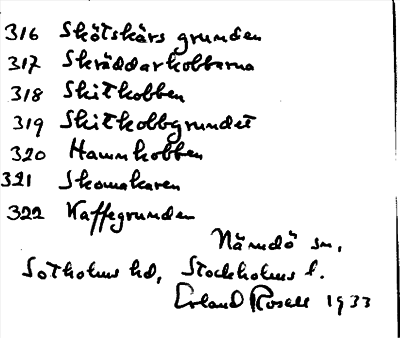 316 Skötskärs grunden
317 Skräddarkobbarna
318 Skitkobben
319 Skitkobbgrundet
320 Hamnkobben
321 Skomakaren
322 Kaffegrunden
Nämdö sn,
Sotholms hd, Stockholms l.
Erland Rosell 1933